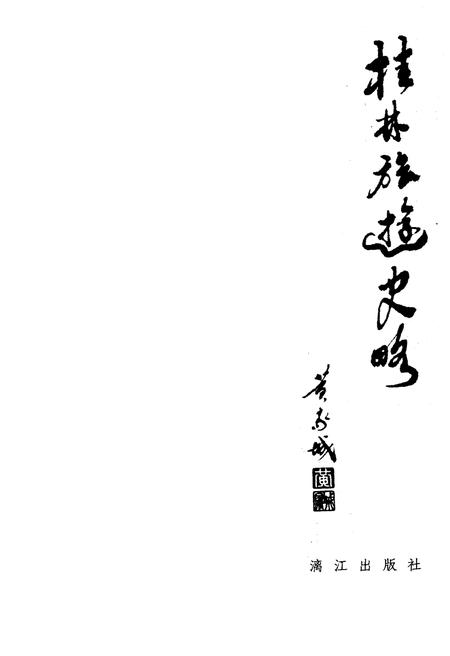 桂林旅遊史略
黄家城
黄
漓江出版社